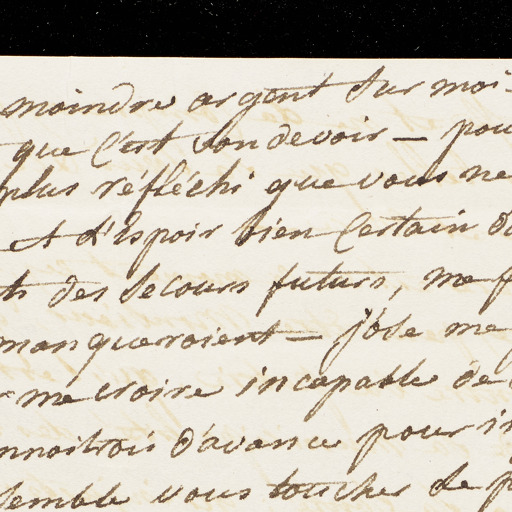 moindre argent sur moi-
que c'est son devoir — pou
plus réfléchi que vous ne
et d'espoir bien certain d
ts des secours futurs, me f
manqueroient — j'ose me
me croire incapable de
nnoitrois d'avance pour i
semble vous toucher de p